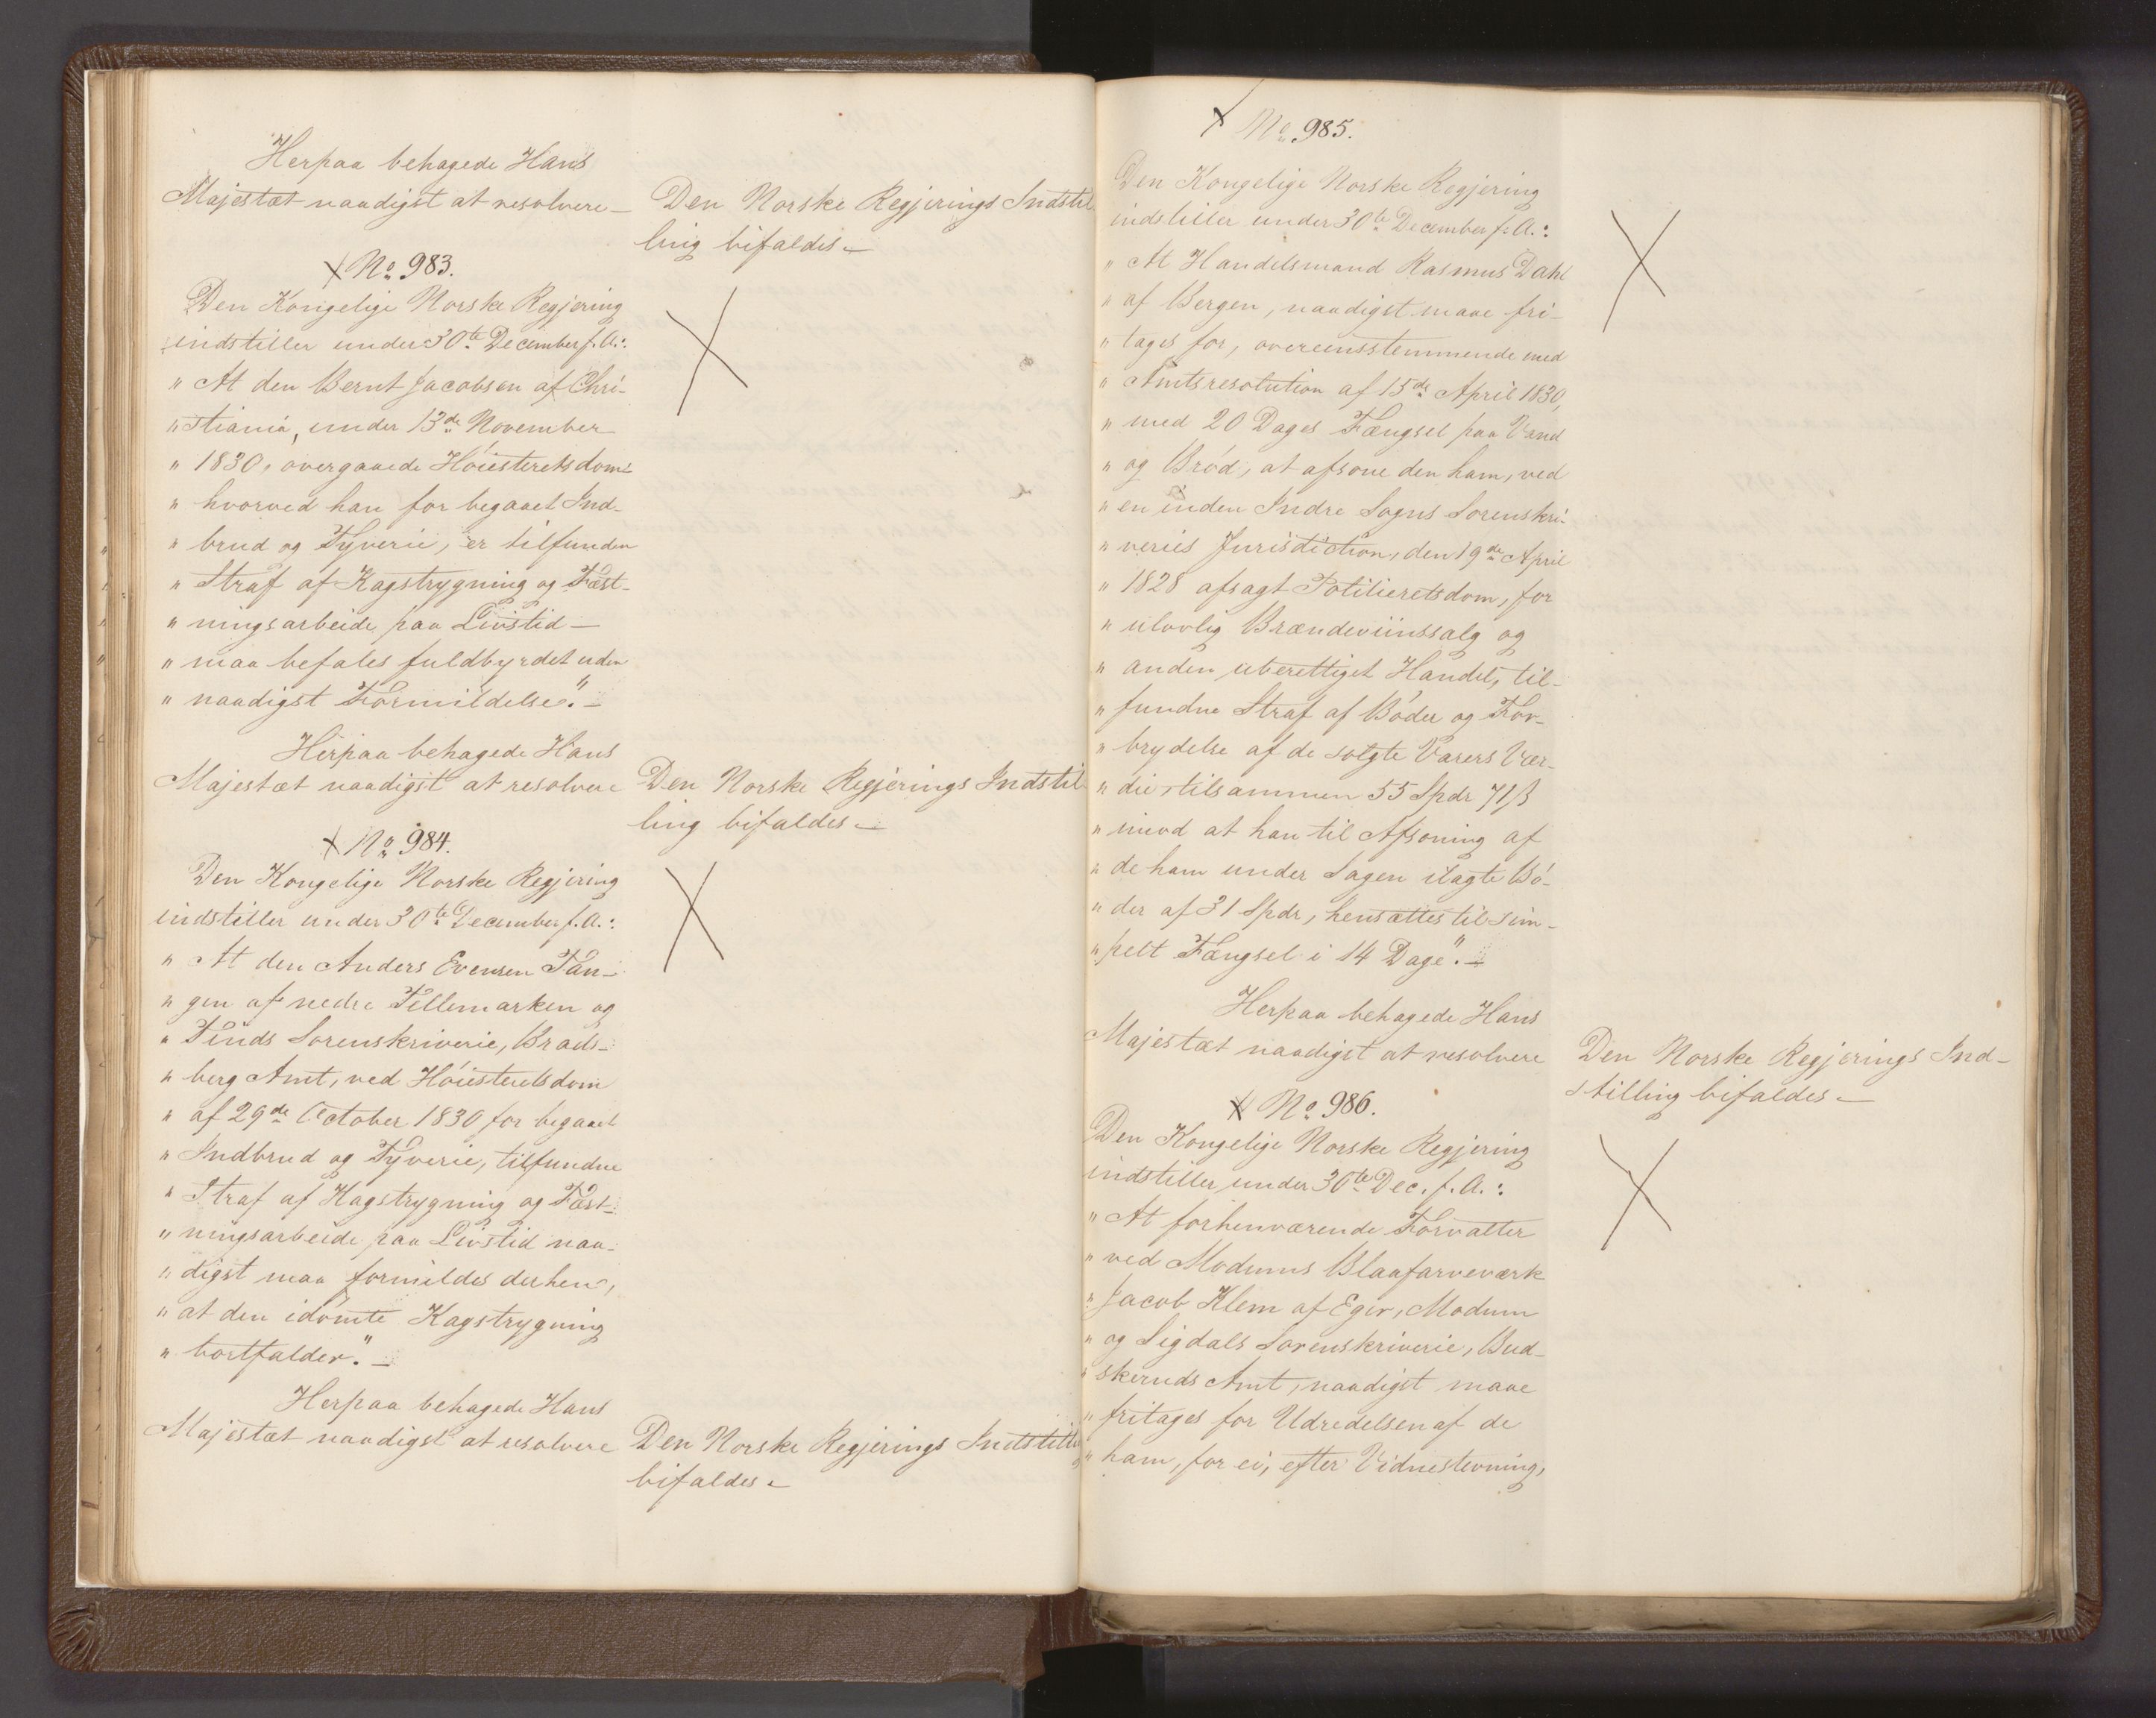 Herpaa behagede Hans
Majestæt naadigst at resolvere –
Den Norske Regjerings Indstil
ling bifaldes –
No 983.
Den Kongelige Norske Regjering
indstiller under 30te December f. A.:
" At den Bernt Jacobsen af Chri-
" stiania, under 13de November
" 1830, overgaaede Höiesteretsdom
" hvorved han for begaaet Ind-
" brud og Tyverie, er tilfunden
" Straf af Kagstrygning og Fæst-
" ningsarbeide paa Livstid –
" maa befales fuldbyrdet uden
" naadigst Formildelse". –
Herpaa behagede Hans
Majestæt naadigst at resolvere
Den Norske Regjerings Indstil
ling bifaldes –
No 984.
Den Kongelige Norske Regjering
indstiller under 30te December f. A.:
" At den Anders Evensen Tan-
" gen af nedre Tellemarken og
" Tinds Sorenskriverie, Brads-
" berg Amt, ved Höiesteretsdom
" af 29de October 1830 for begaaet
" Indbrud og Tyverie, tilfundne
" Straf af Kagstrygning og Fæst-
" ningsarbeide paa Livstid naa-
" digst maa formildes derhen,
" at den idömte Kagstrygning
" bortfalder". –
Herpaa behagede Hans
Majestæt naadigst at resolvere
Den Norske Regjerings Indstilling
bifaldes –
No 985.
Den Kongelige Norske Regjering
indstiller under 30te December f. A.:
" At Handelsmand Rasmus Dahl
" af Bergen, naadigst maae fri-
" tages for, overeensstemmende med
" Amtsresolution af 15de April 1830,
" med 20 Dages Fængsel paa Vand
" og Bröd, at afsone den ham, ved
" en inden Indre Sogns Sorenskri-
" veries Jurisdiction, den 19de April
" 1828 afsagt Politieretsdom, for
" ulovlig Brændeviinssalg og
" anden uberettiget Handel, til-
" fundne Straf af Böder og For-
" brydelse af de solgte Varers Vær-
" die, tilsammen 55 Spdr 71 ß
" imod at han til Afsoning af
" de ham under Sagen ilagte Bö-
" der af 31 Spdr, hensættes til sim-
" pelt Fængsel i 14 Dage". –
Herpaa behagede Hans
Majestæt naadigst at resolvere
Den Norske Regjerings Ind-
stilling bifaldes –
No 986.
Den Kongelige Norske Regjering
indstiller under 30te Dec. f. A.:
" At forhenværende Forvalter
" ved Modums Blaafarveværk
" Jacob Klem af Eger, Modum
" og Sigdals Sorenskriverie, Bud-
" skeruds Amt, naadigst maae
" fritages for Udredelsen af de
" ham, for ei, efter Vidnestevning,